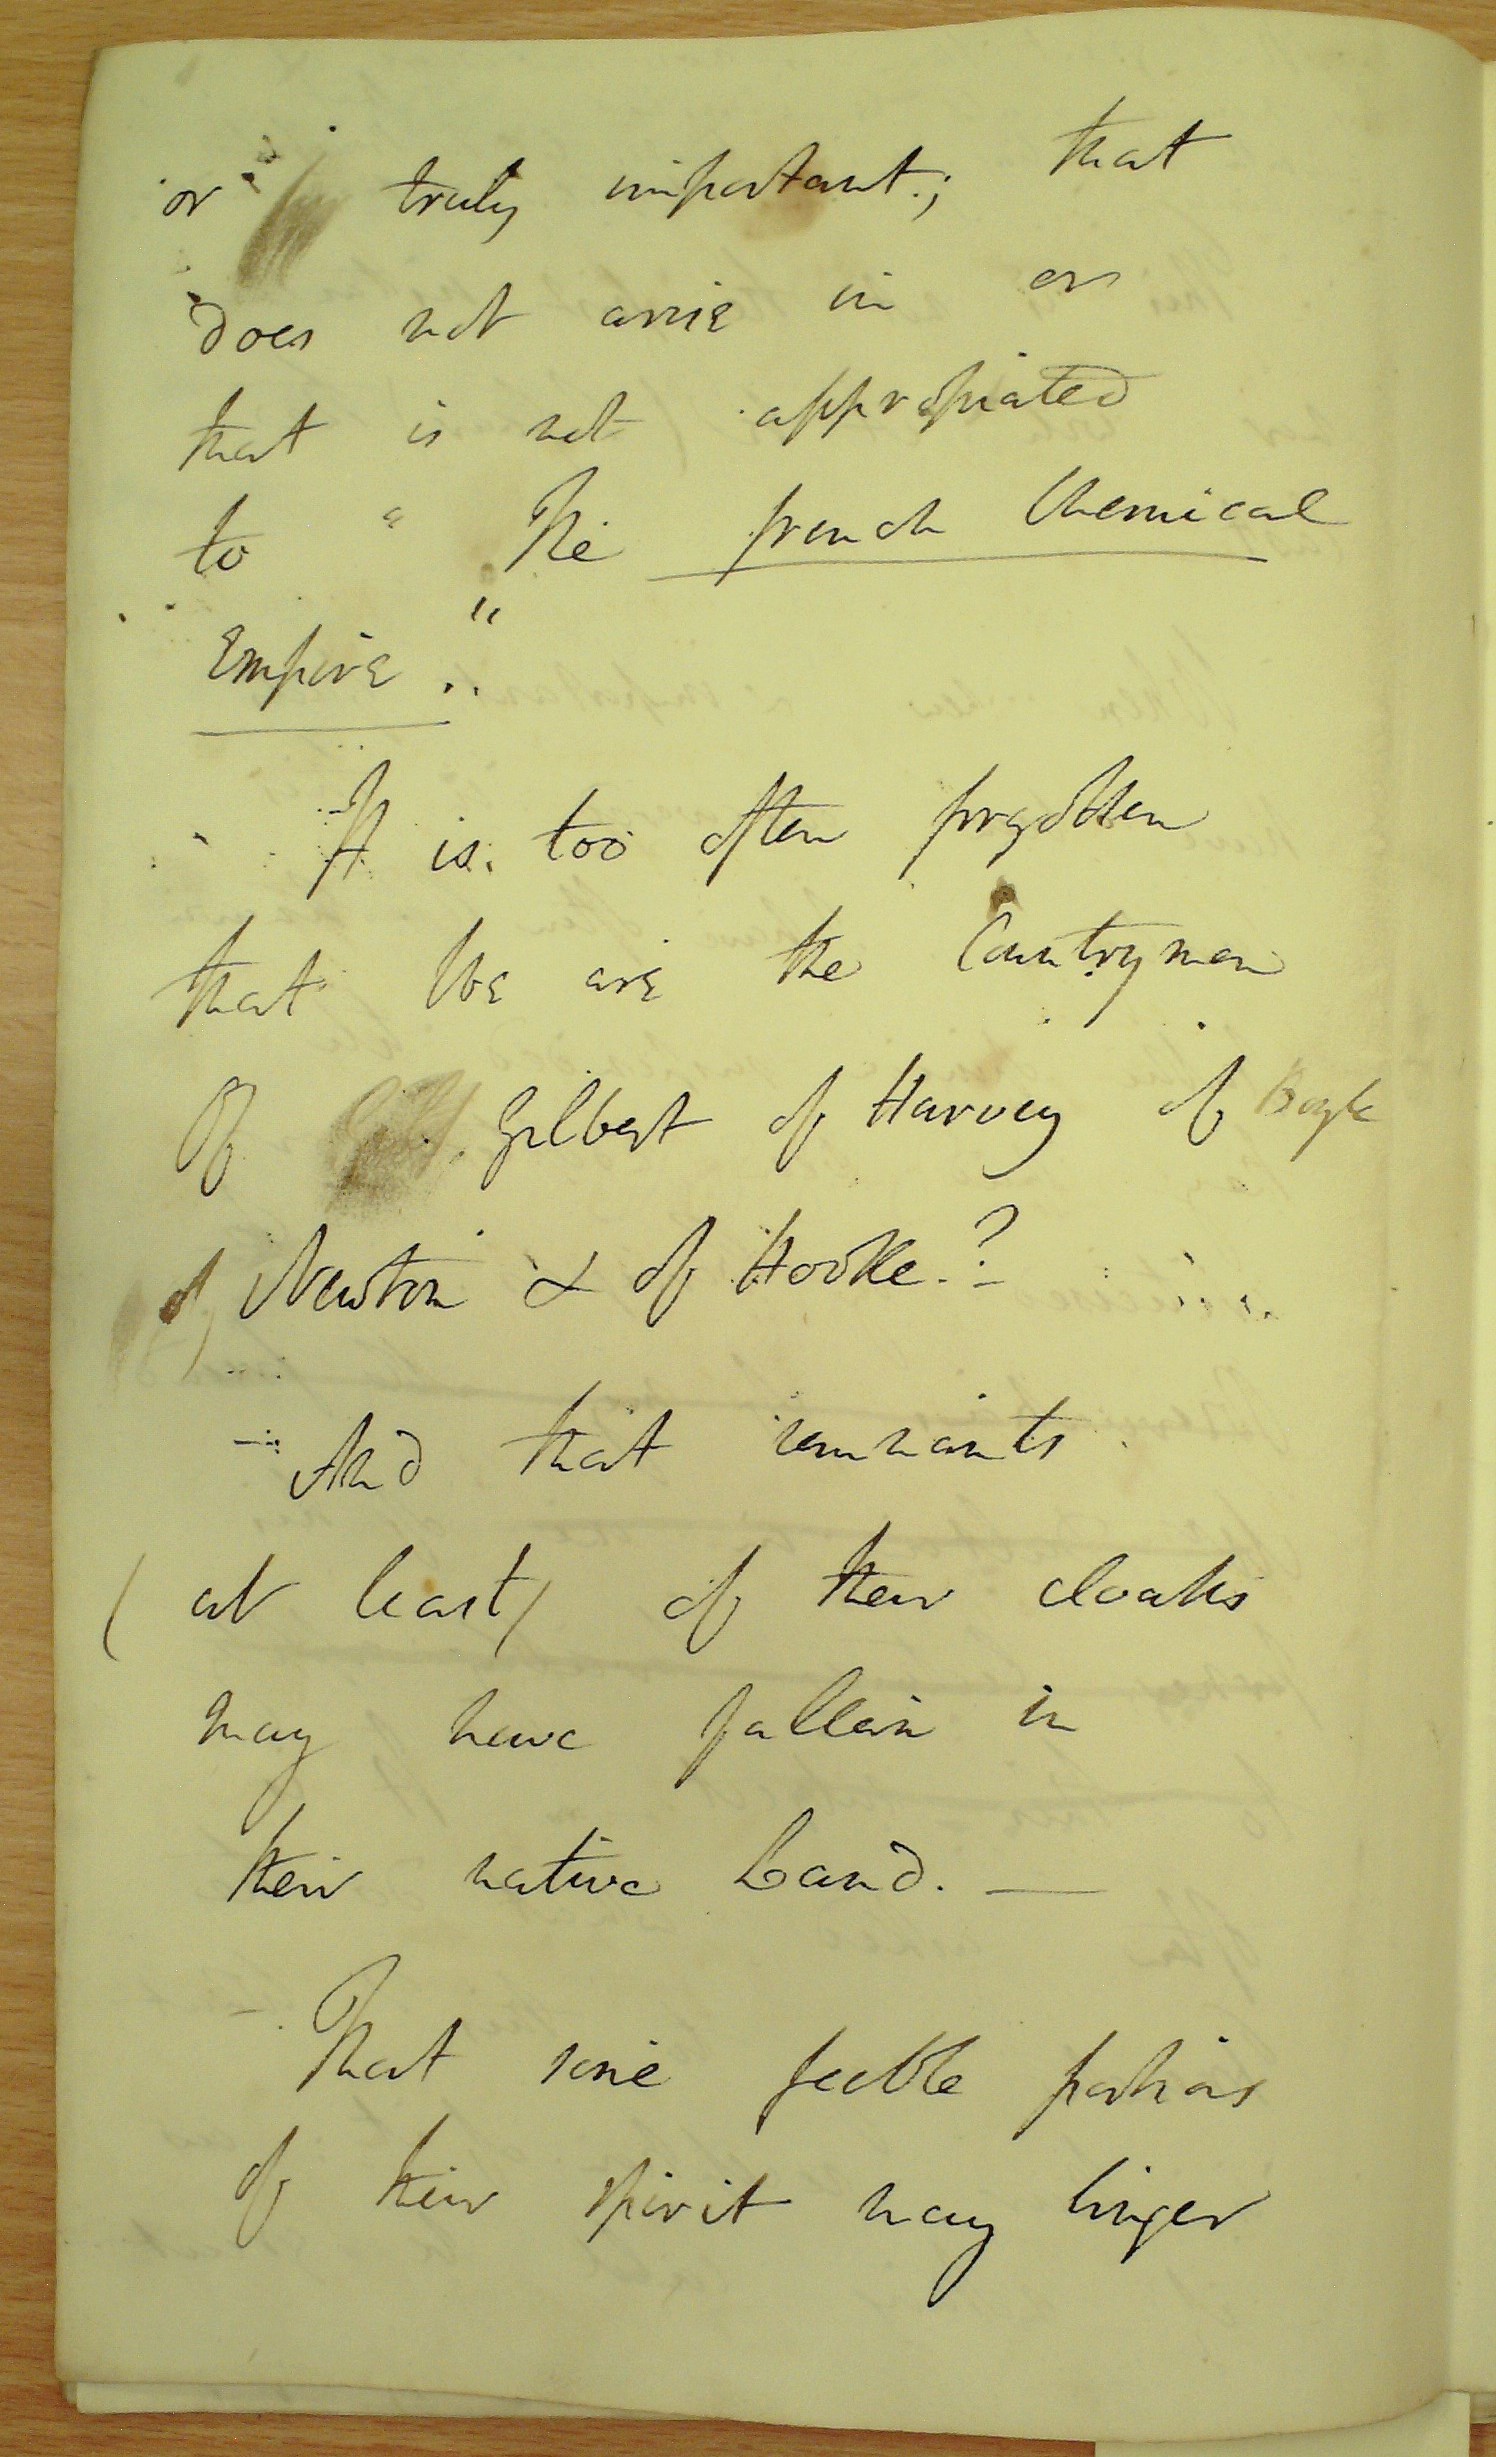 or truly important; that
does not arise in or
that is not appropriated
to "The french Chemical
Empire."
It is too often forgotten
that We are the Countrymen
Of Gilbert of Harvey of Boyle
of Newton & of Hooke.?
- And that remnants
(at least) of their cloaks
may have fallen in
their native Land. —
- That some feeble portions
of their spirit may linger